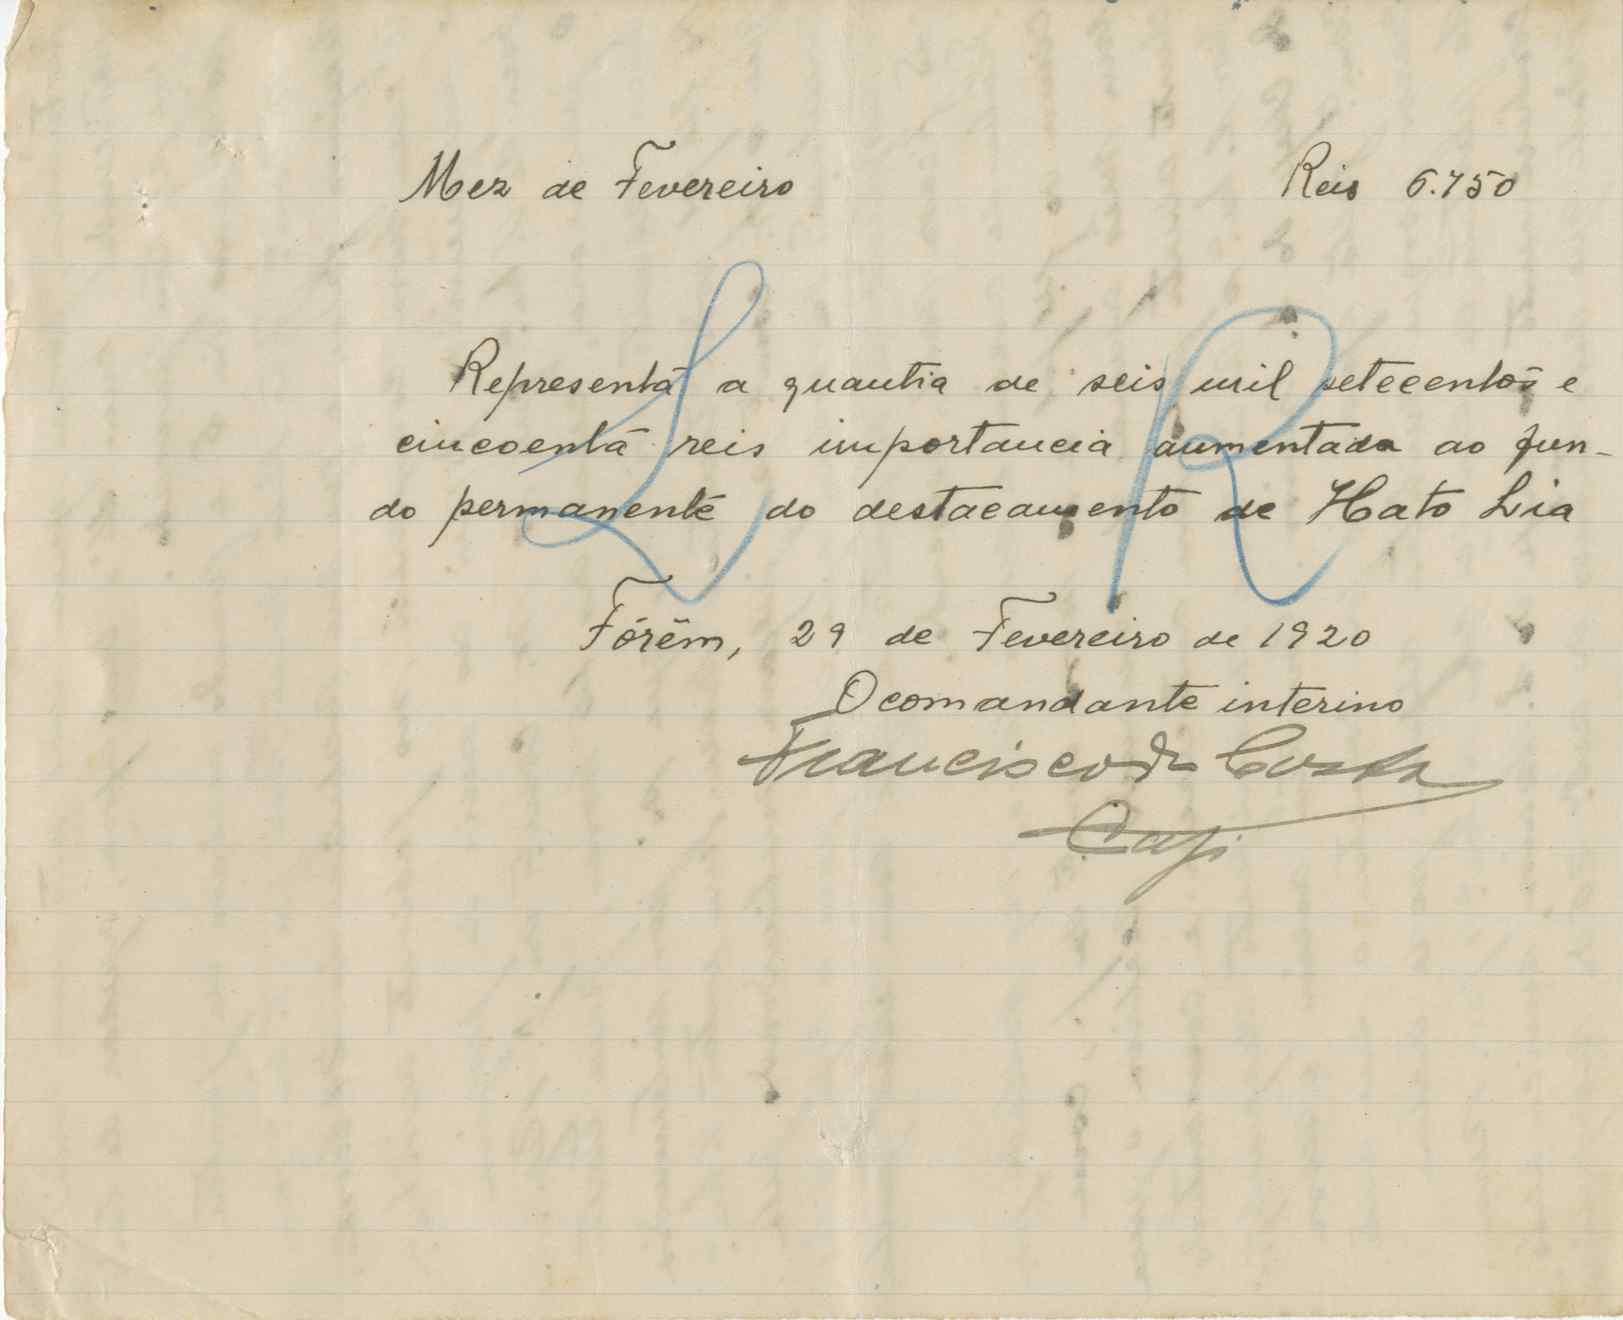 Mez de Fevereiro Reis 6.750
Representa a quantia de seis mil setecentos e
cincoenta reis importancia aumentada ao fun-
do permanente do destacamento de Hato Lia
L R
Fórêm, 29 de Fevereiro de 1920
O comandante interino
Francisco da Costa
Cap